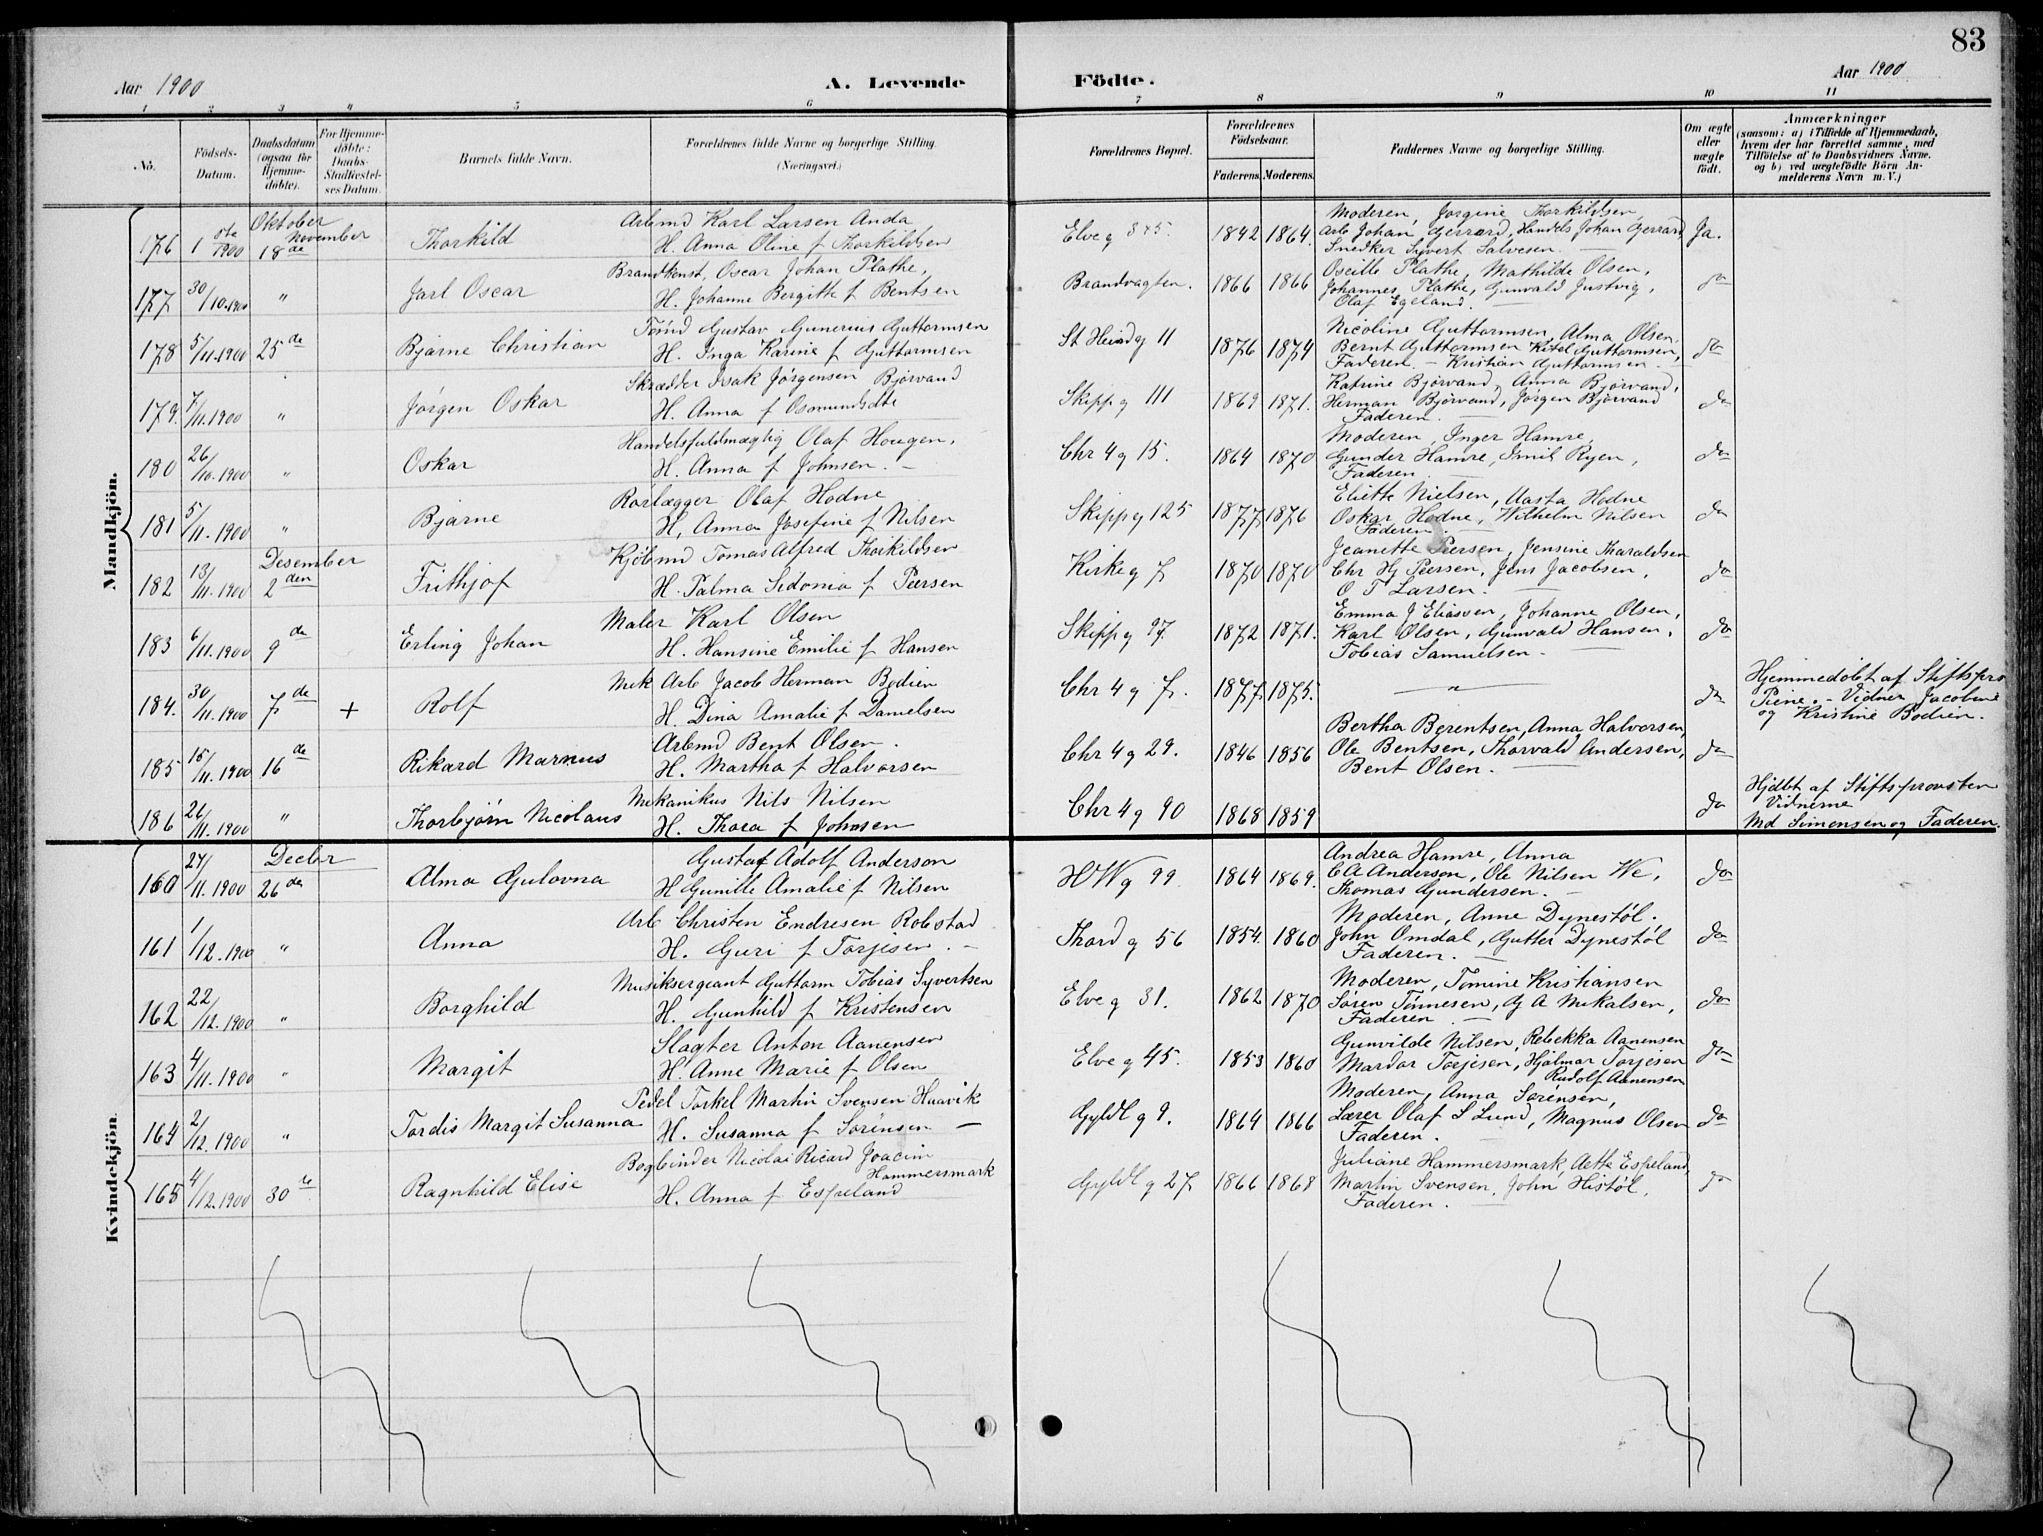 83
Aar 1900
A. Levende
Födte.
Aar 1900
1 2 3 4 5 6 7 8 9 10 11
No.
Födsels-Datum.
Daabsdatum (ogsaa for Hjemmedöbte).
For Hjemmedöbte: Daabs-Stadfæstelses Datum.
Barnets fulde Navn.
Forældrenes fulde Navne og borgerlige Stilling. (Næringsvei.)
Forældrenes Bopæl.
Forældrenes Födselsaar.
Faderens. Moderens.
Faddernes Navne og borgerlige Stilling.
Om ægte eller uægte födt.
Anmærkninger
(saasom: a) i Tilfælde af Hjemmedaab, hvem der har forrettet samme, med Tilföielse af to Daabsvidners Navne, og b) ved uægtefödte Börn Anmelderens Navn m. V.)
Mandkjön.
Oktober
176 1ste 1900 November 18de Thorkild
Arbmd Karl Larsen Anda
H. Anna Oline f Thorkildsen
Elveg 845. 1842 1864.
Moderen, Jorgine Thorkildsen,
Arb Johan Gerrard, Handels Johan Gerrard,
Snedker Syvert Salvesen. —
Ja.
177 30/10.1900 " Jarl Oscar
Brandkonst, Oscar Johan Plathe,
H. Johanne Bergitte f Bentsen
Brandvagten. 1866 1866
Oscille Plathe, Mathilde Olsen,
Johannes Plathe, Gunvald Justvig,
Olaf Egeland.
do
178 5/11.1900 25de Bjarne Christian
Tømd Gustav Gunerius Guttormsen
H. Inga Karine f Guttormsen
St Heirdg 11 1876 1874
Nicoline Guttormsen, Alma Olsen.
Bernt Guttormsen Kitel Guttormsen,
Faderen — Kristian Guttormsen. —
do
179. 7/11.1900 " Jørgen Oskar
Skrædder Isak Jørgensen Bjørvand
H. Anna f Osmundsdte
Skippg 111 1869 1871.
Katrine Bjørvand, Anna Bjørvand,
Herman Bjørvand, Jørgen Bjørvand
Faderen. —
do
180 26/10.1900 " Oskar
Handelsfuldmægtig Olaf Hougen,
H. Anna f Johnsen. —
Chr 4 g 15. 1864 1870
Moderen, Inger Hamre,
Gunder Hamre, Emil Ryen,
Faderen
do
181 5/11.1900 " Bjarne
Rørlægger Olaf Hodne
H, Anna Josefine f Nilsen
Skippg 125 1877 1876
Eliette Nielsen, Aasta Hodne
Oskar Hodne, Wilhelm Nilsen
Faderen.
do
Desember
182 13/11.1900 2den Frithjof
Kjøbmd Tomas Alfred Thorkildsen
H. Palma Sidonia f Peersen
Kirkeg 7 1870 1870
Jeanette Peersen, Jensine Tharaldsen
Chr Hj Peersen, Jens Jacobsen,
O T Larsen. —
do
183 6/11.1900 9de Erling Johan
Maler Karl Olsen
H. Hansine Emilie f Hansen
Skippg 97. 1872 1871.
Emma J Eliassen, Johanne Olsen,
Karl Olsen, Gunvald Hansen,
Tobias Samuelsen. —
do
184. 30/11.1900 7de + Rolf
Mek Arb Jacob Herman Bodien
H. Dina Amalie f Danielsen
Chr 4 g 7. 1877 1875.
— " —
do
Hjemmedøbt af Stiftspro
Piene. — Vidner Jacobine
og Kristine Bodien.
185 15/11.1900 16de Rikard Marnus
Arbmd Bent Olsen.
H. Martha f Halvorsen
Chr 4 g 29. 1846 1856
Bertha Berentsen, Anna Halvorsen,
Ole Bentsen, Thorvald Andersen,
Bent Olsen. —
do
186 26/11.1900 " Thorbjørn Nicolaus
Mekanikus Nils Nilsen
H. Thora f Johnsen
Chr 4 g 90 1868 1859
do
Hjdbt af Stiftsprovsten
Vidnerne
Md Simensen og Faderen.
Kvindekjön
Decbr
160 27/11.1900 26de Alma Gulovna
Gustaf Adolf Anderson
H Gunille Amalie f Nilsen
HWg 99. 1864 1869.
Andrea Hamre, Anna
C A Anderson, Ole Nilsen We,
Thomas Gundersen. —
do
161 1/12.1900 " Anna
Arb Christen Endresen Robstad
H. Guri f Torjesen. —
Thord g 56 1854. 1860
Moderen, Anne Dynestøl.
John Omdal, Gutter Dynestøl
Faderen. —
do
162 22/12.1900 " Borghild
Musiksergeant Guttorm Tobias Syvertsen
H. Gunhild f Kristensen
Elveg 31. 1862 1870
Moderen, Tomine Kristiansen
Søren Tønnesen, G A Mikalsen,
Faderen. —
do
163 4/11.1900 " Margit
Slagter Anton Aanensen
H. Anne Marie f Olsen
Elveg 45. 1853 1860
Gunvilde Nilsen, Rebekka Aanensen
Mardor Torjesen, Hjalmar Torjesen
Rudolf Aanensen
do
164 2/12.1900 " Tordis Margit Susanna
Pedel Torkel Martin Svensen Haavik
H. Susanna f Sørensen —
Gyldl g 9. 1864 1866
Moderen, Anna Sørensen,
Lærer Olaf S Lund, Magnus Olsen
Faderen.
do
165 4/12.1900 30te Ragnhild Elise
Bogbinder Nicolai Ricard Joacim
Hammersmark
H. Anna f Espeland
Gyldl g 27 1866 1868
Juliane Hammersmark, Aette Espeland,
Martin Svensen, John Histøl,
Faderen. —
do